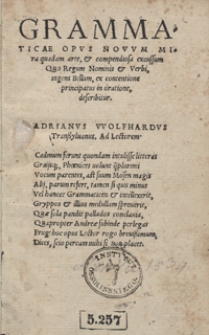 GRAMMA
TICAE OPVS NOVVM MI
ra quadam arte, & compendiosa excussum
Quo Regum Nominis & Verbi,
ingens Bellum, ex contentione
principatus in oratione,
describitur.
ADRIANVS VVOLFHARDVS
Transsyluanus. Ad Lectorem
Cadmum ferunt quondam intulisse litteras
Graijs, Phœnices uelunt
Vocum parentes, ast suum Mosen magis
refert, tamen si quis minus
Vel hancer Grammaticen & excellexerit,
Gryppos & illius medullam spreuerit,
Quæ sola pandit palladis conclauia,
Quapropter Andreæ subinde perlegas
Frug: hoc opus Lector rogo breuissimum,
Dices, scio percam nisi si non placet.
5.257